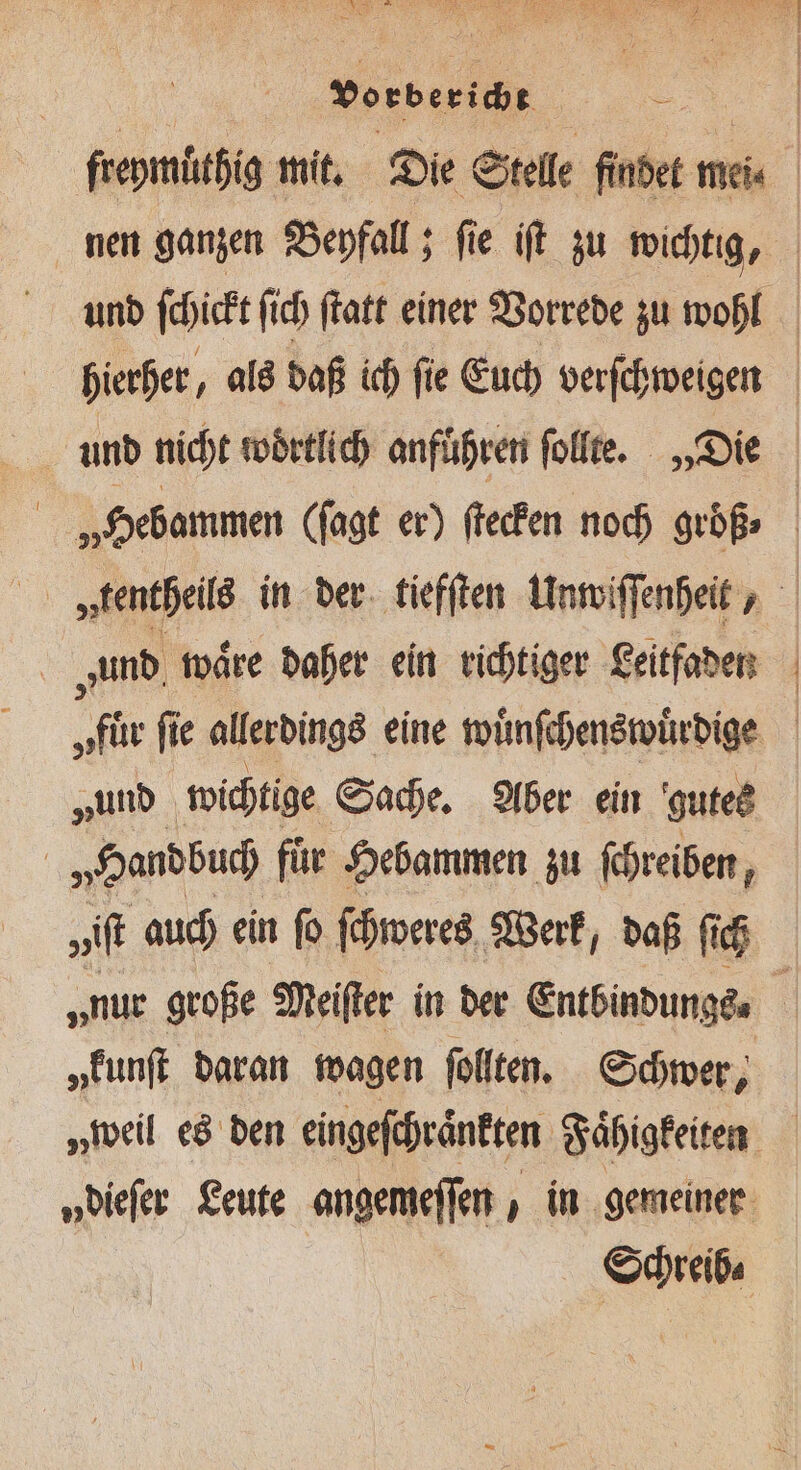 Vorbericht
freymuͤthig mit. Die Stelle findet mei-
nen ganzen Beyfall; ſie iſt zu wichtig,
und ſchickt ſich ſtatt einer Vorrede zu wohl
hierher, als daß ich ſie Euch verſchweigen
und nicht woͤrtlich anfuͤhren ſollte. „Die
„Hebammen (ſagt er) ſtecken noch groͤß-
„tentheils in der tiefſten Unwiſſenheit,
„und waͤre daher ein richtiger Leitfaden
„fuͤr ſie allerdings eine wuͤnſchenswuͤrdige
„und wichtige Sache. Aber ein gutes
„Handbuch fuͤr Hebammen zu ſchreiben,
„iſt auch ein ſo ſchweres Werk, daß ſich
„nur große Meiſter in der Entbindungs-
„kunſt daran wagen ſollten. Schwer,
„weil es den eingeſchraͤnkten Faͤhigkeiten
„dieſer Leute angemeſſen, in gemeiner
Schreib-